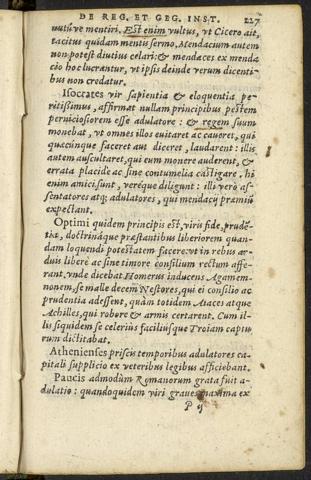 DE REG. ET GEG. INST. 227
uultũ ve mentiri. Est enim vultus, vt Cicero ait,
tacitus quidam mentis sermo. Mendacium autem
non potest diutius celari: & mendaces ex menda
cio hoc lucrantur, vt ipsis deinde verum dicenti-
bus non credatur.
Isocrates vir sapientia & eloquentia pe-
ritißimus, affirmat nullam principibus pestem
perniciosiorem esse adulatore: & regem suum
monebat, vt omnes illos euitaret ac caueret, qui
quæcũnque faceret aut diceret, laudarent: illis
autem auscultaret, qui eum monere auderent, &
errata placide ac sine contumelia castigare. hi
enim amici sunt, veréque diligunt: illi verò as-
sentatores atq; adulatores, qui mendacij præmiũ
expectant.
Optimi quidem principis est, viris fide, prudẽ-
tia, doctrináque præstantibus liberiorem quan-
dam loquendi potestatem facere: vt in rebus ar-
duis liberè ac sine timore consilium rectum affe-
rant. vnde dicebat Homerus inducens Agamem-
nonem, se malle decem Nestores, qui ei consilio ac
prudentia adessent, quàm totidem Aiaces atque
Achilles, qui robore & armis certarent. Cum il-
lis siquidem se celerius faciliusque Troiam captu
rum dictitabat.
Athenienses priscis temporibus adulatores ca-
pitali supplicio ex veteribus legibus afficiebant.
Paucis admodùm Romanorum grata fuit a-
dulatio: quandoquidem viri graues maxima ex
P ij